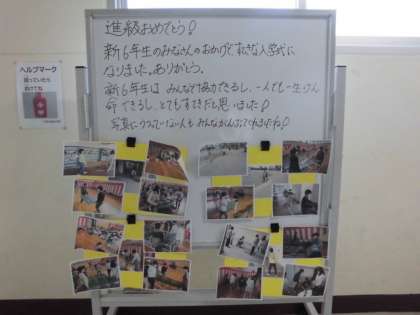 進級おめでとう!
新6年生のみなさんのおかげで、すてきな入学式に
なりました。ありがとう。
新6年生は、みんなで協力できるし、一人でも一生けん
命できるし、とてもすてきだと思いました!
写真にうつっていない人も みんながんばってくれましたね!
ヘルプマーク
困っていたら
助けてね